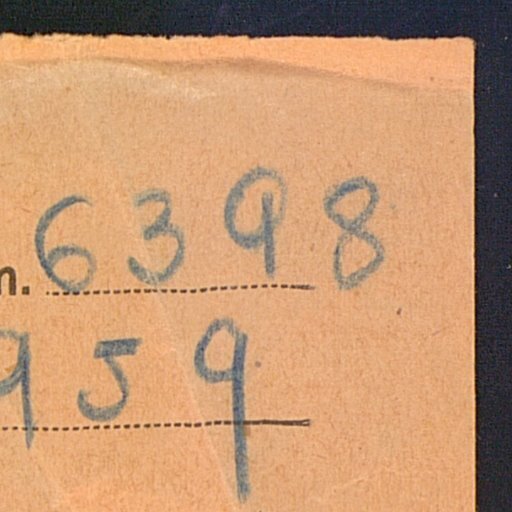 n. 6398
959